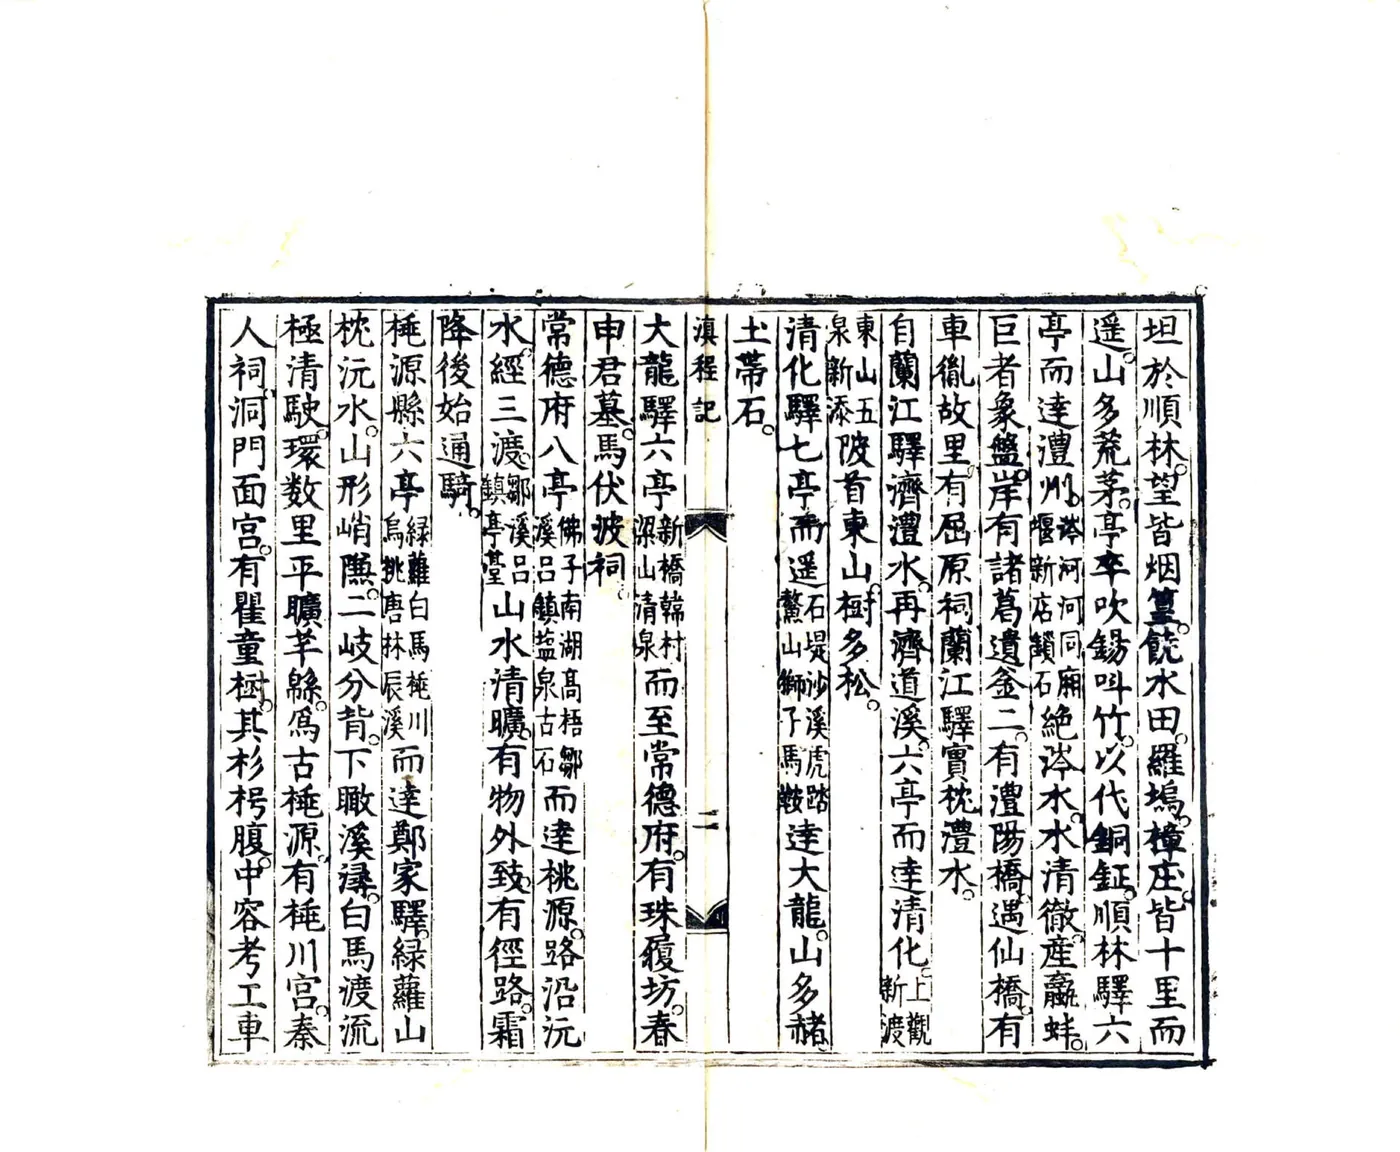 坦於順林。望皆烟篁。饒水田。羅塢。樟庄。皆十里而
遥。山多荒茅。亭卒吹錫呌竹。以代銅鉦。順林驛六
亭而達澧州。涔河河同廂堰新店鎖石絶涔水。水清徹。産蠃蚌。
巨者象盤。岸有諸葛遺金二。有澧陽橋。遇仙橋。有
車胤故里。有屈原祠。蘭江驛實枕澧水。
自蘭江驛濟澧水。再濟道溪。六亭而達清化。上觀新渡
東山五泉新添陂首東山。樹多松。
清化驛七亭而遥石堤沙溪虎踏鰲山獅子馬鞍達大龍。山多赭
土帯石。
滇程記
二
大龍驛六亭新橋韓村梁山清泉而至常德府。有珠履坊。春
申君墓。馬伏波祠。
常德府八亭佛子南湖高梧鄒溪吕鎮葢泉古石而達桃源。路沿沅
水。經三渡。鄒溪吕鎮亭臺山水清曠。有物外致。有徑路。霜
降後始通騎。
桃源縣六亭緑蘿白馬桃川烏桃唐林辰溪而達鄭家驛。緑蘿山
枕沅水。山形峭隒。二岐分背。下瞰溪潯。白馬渡流
極清駛。環数里平曠芊緜。爲古桃源。有桃川宫。秦
人祠。洞門面宫。有瞿童樹。其杉枵腹。中容考工車